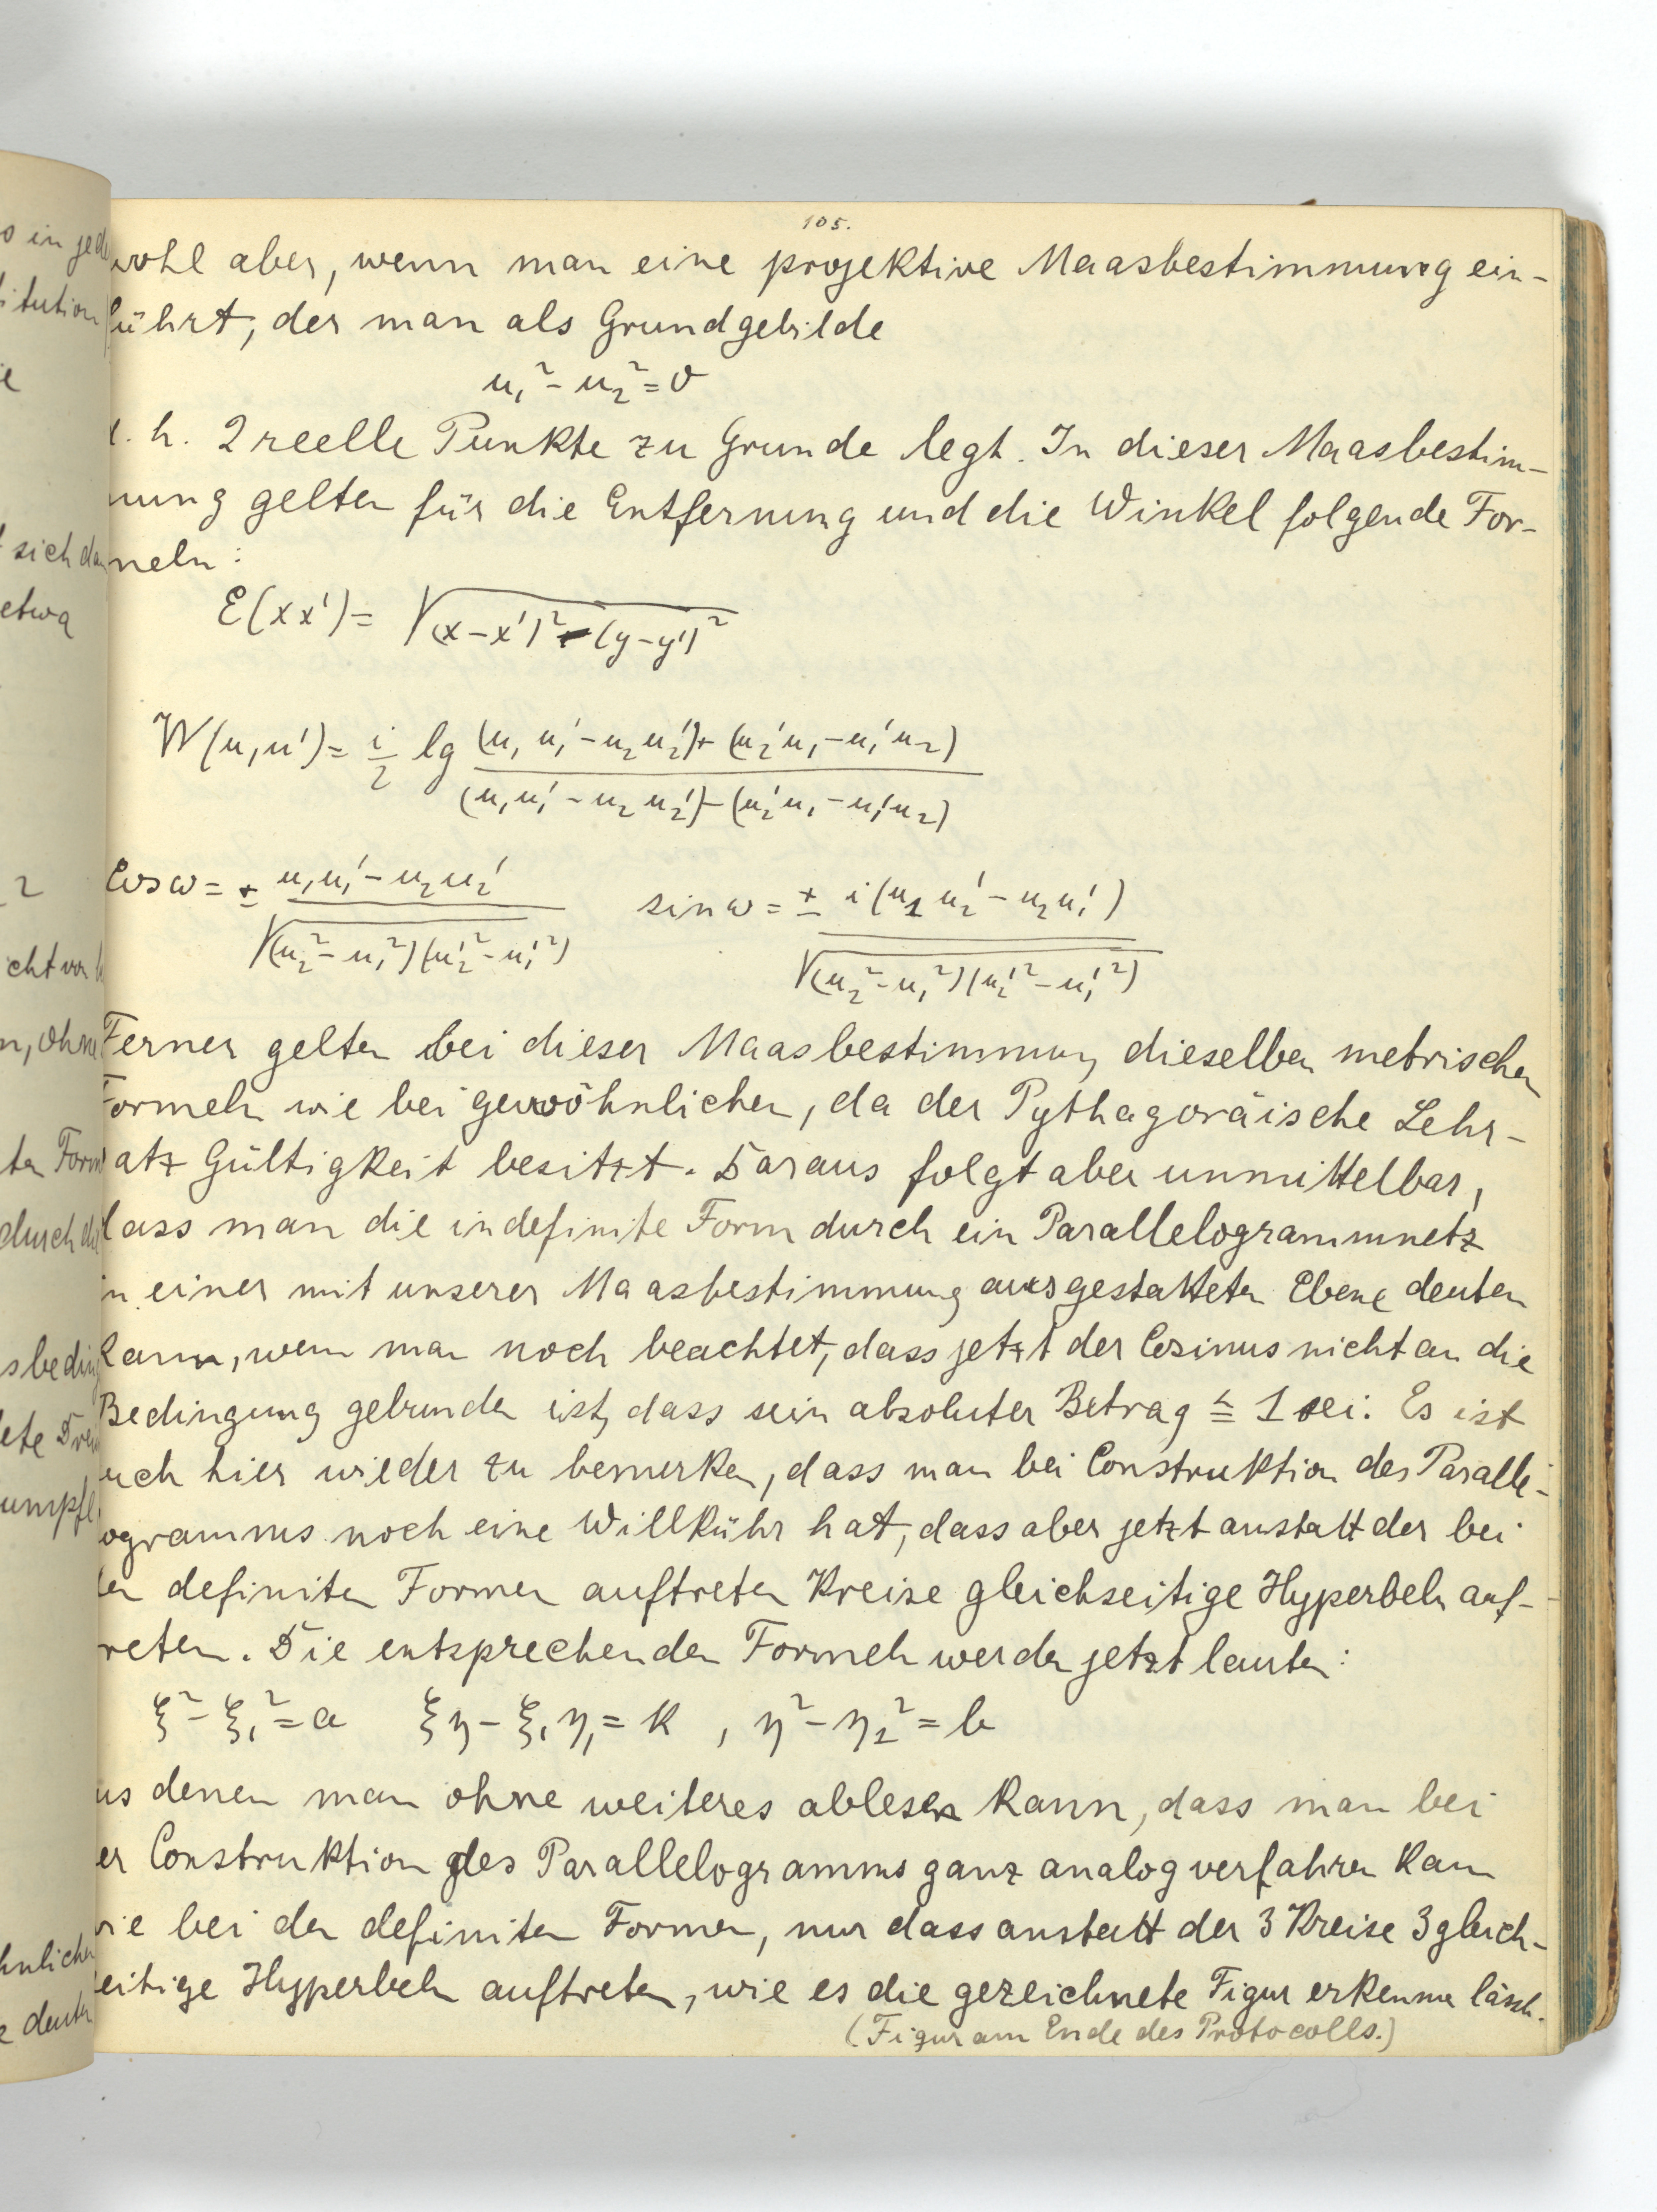 105.
wohl aber, wenn man eine projektive Maasbestimmung ein-
führt, der man als Grundgebilde
u₁² - u₂² = 0
d. h. 2 reelle Punkte zu Grunde legt. In dieser Maasbestim-
mung gelten für die Entfernung und die Winkel folgende For-
meln:
E(x x') = √(x-x')² - (y-y')²
W(u, u') = i/2 lg (u₁ u₁' - u₂ u₂') + (u₂' u₁ - u₁' u₂) / (u₁ u₁' - u₂ u₂') - (u₂' u₁ - u₁' u₂)
Cos ω = ± u₁ u₁' - u₂ u₂' / √(u₂² - u₁²)(u₂'² - u₁'²) sin ω = ± i(u₁ u₂' - u₂ u₁') / √(u₂² - u₁²)(u₂'² - u₁'²)
Ferner gelten bei dieser Maasbestimmung dieselben metrischen
Formeln wie bei gewöhnlichen, da der Pythagoräische Lehr-
satz Gültigkeit besitzt. Daraus folgt aber unmittelbar,
dass man die indefinite Form durch ein Parallelogrammnetz
in einer mit unserer Maasbestimmung ausgestatteten Ebene deuten
kann, wenn man noch beachtet, dass jetzt der Cosinus nicht an die
Bedingung gebunden ist, dass sein absoluter Betrag ≦ 1 sei. Es ist
auch hier wieder zu bemerken, dass man bei Construktion des Paralle-
logramms noch eine Willkühr hat, dass aber jetzt anstatt der bei
den definiten Formen auftreten Kreise gleichseitige Hyperbeln auf-
treten. Die entsprechenden Formeln werden jetzt lauten:
ξ² - ξ₁² = a ξη - ξ₁η₁ = k , η² - η₂² = b
aus denen man ohne weiteres ablesen kann, dass man bei
der Construktion des Parallelogramms ganz analog verfahren kann
wie bei den definiten Formen, nur dass anstatt der 3 Kreise 3 gleich-
seitige Hyperbeln auftreten, wie es die gezeichnete Figur erkennen lässt.
(Figur am Ende des Protocolls.)